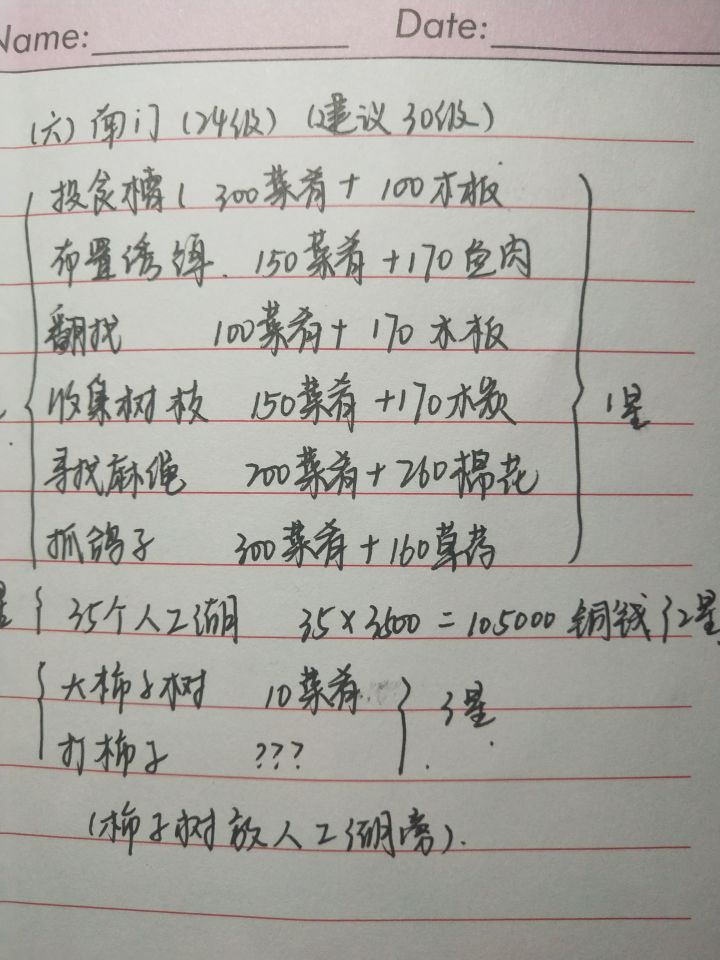 Name:
Date:
(六) 南门 (24级) (建议30级)
投食槽 ( 300菜肴 + 100木板
布置诱饵. 150菜肴 + 170鱼肉
翻找 100菜肴 + 170木板
收集树枝 150菜肴 + 170木炭 1星
寻找麻绳 200菜肴 + 260棉花
抓鸽子 300菜肴 + 160草药
星 { 35个人工湖 35×3500 = 105000 铜钱 } 2星
大柿子树 10菜肴 3星
打柿子 ???
(柿子树放人工湖旁).